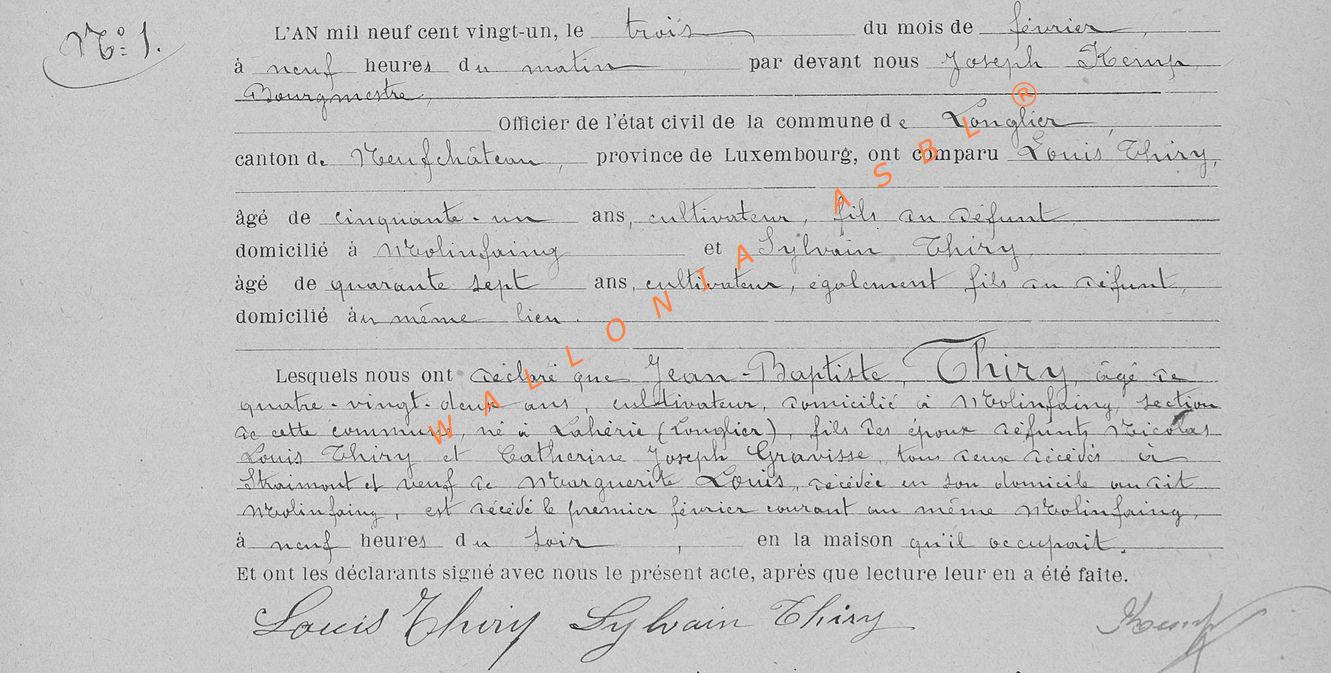 N.º 1.
L'AN mil neuf cent vingt-un, le trois du mois de février,
à neuf heures du matin, par devant nous Joseph Kemp,
Bourgmestre,
Officier de l'état civil de la commune de Longlier,
canton de Neufchâteau, province de Luxembourg, ont comparu Louis Thiry,
âgé de cinquante-un ans, cultivateur, fils du défunt
domicilié à Molinfaing et Sylvain Thiry
âgé de quarante sept ans, cultivateur, également fils du défunt,
domicilié au même lieu.
Lesquels nous ont déclaré que Jean-Baptiste Thiry, âgé de
quatre-vingt-deux ans, cultivateur, domicilié à Molinfaing, section
de cette commune, né à Lahérie (Longlier), fils des époux défunts Nicolas
Louis Thiry et Catherine Joseph Gravisse, tous deux décédés à
Straimont et veuf de Marguerite Louis, décédée en son domicile au dit
Molinfaing, est décédé le premier février courant au même Molinfaing,
à neuf heures du soir, en la maison qu'il occupait.
Et ont les déclarants signé avec nous le présent acte, après que lecture leur en a été faite.
Louis Thiry Sylvain Thiry Kemp
WALLONIA ASBL ®